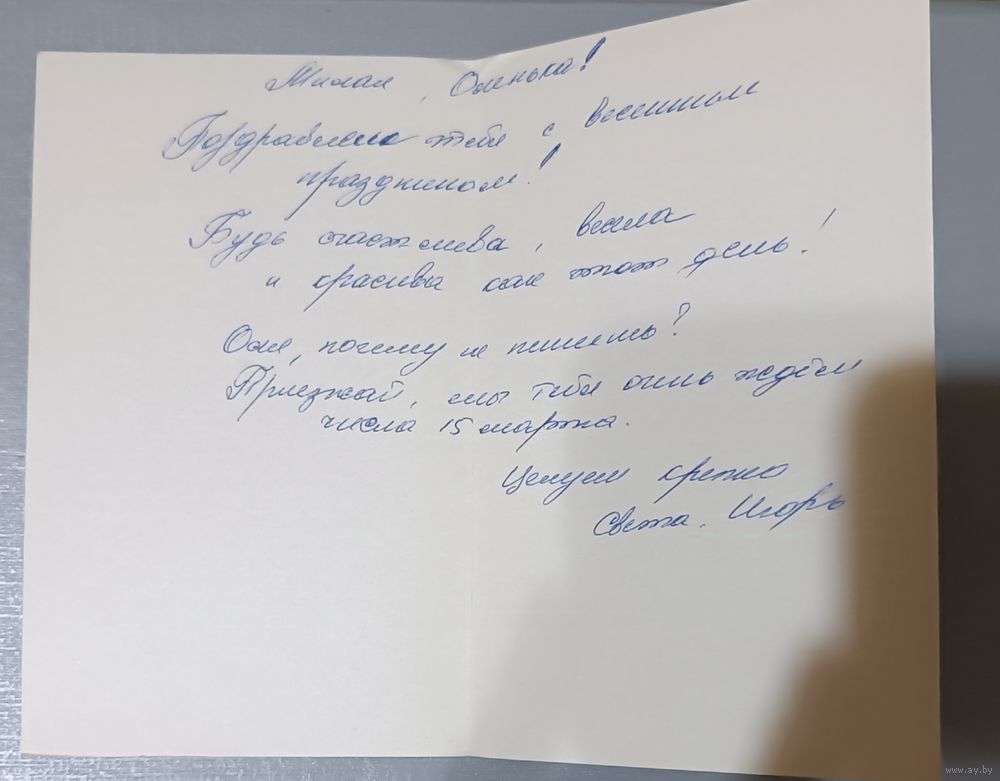 Милая, Оленька!
Поздравляю тебя с весенним
праздником!
Будь счастлива, весела
и красива как этот день!
Оля, почему не пишешь?
Приезжай, мы тебя очень ждём
числа 15 марта.
Целуем крепко
Света. Игорь
www.ay.by